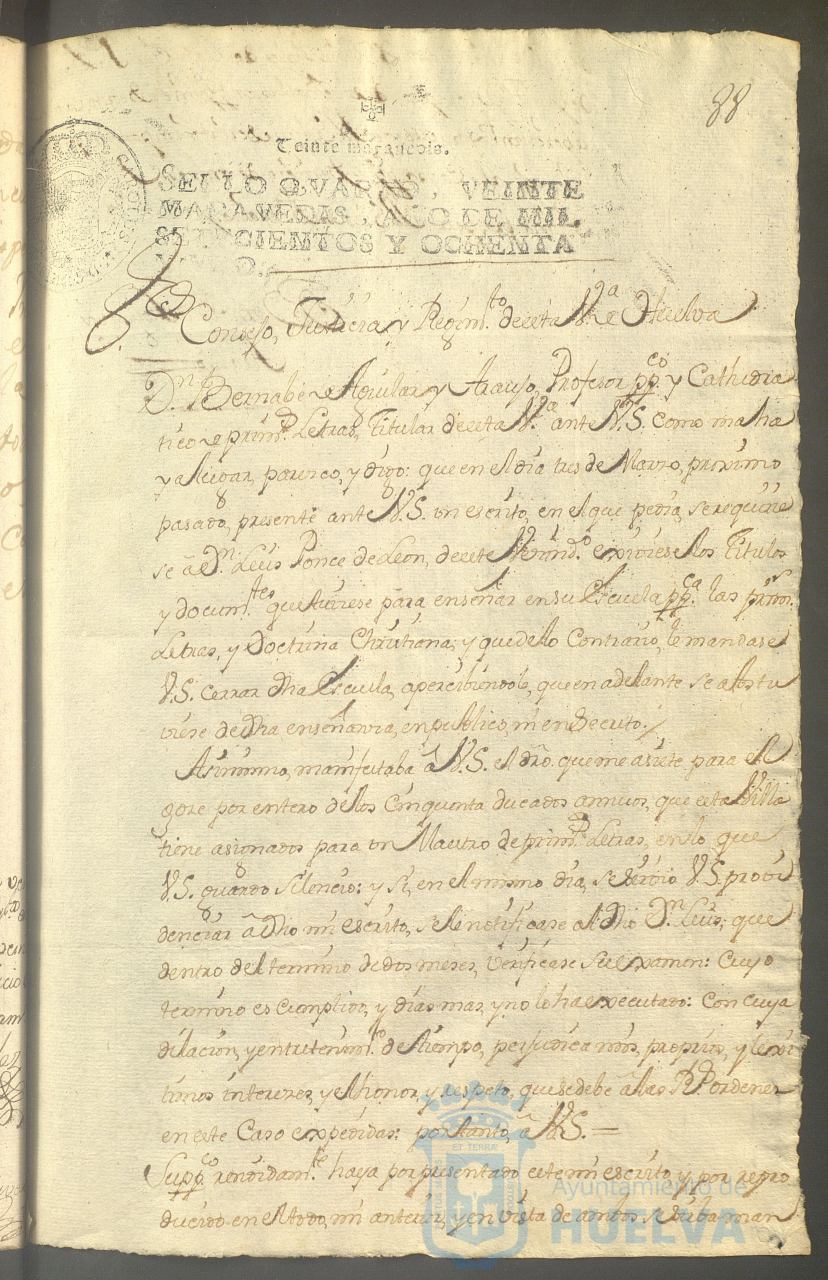 88
Teinte marauedis.
SELLO QVARTO, VEINTE
MARAVEDIS, AÑO DE MIL
SETECIENTOS Y OCHENTA
O.
Consejo, Justicia, y Regim.to de esta V.a de Huelva
D.n Bernabè de Aguilar y Araujo, Profesor pp.co y Cathedra
tico de prim.s Letras, Titular de esta V.a ante V.S. como mas ha
ya lugar, parezco, y digo: que en el dia tres de Marzo, proximo
pasado, presentè ante V.S. un escrito, en el que pedia, se requirie
se â D.n Luis Ponce de Leon, de este Vecind.o exiviese los Titulos
y docum.tos que tuviese para enseñar en su Escuela pp.ca las prim.s
Letras, y Doctrina Christiana; y que de lo Contrario, le mandase
V.S. cerrar dha Escuela, apercibiendole, que en adelante se abstu
viese de dha enseñanza, en publico, ni en Secreto.
Asimismo, manifestaba â V.S. el dro. que me asiste para el
goze por entero de los Cinquenta ducados annuos, que esta Villa
tiene asignados para un Maestro de prim.s Letras, en lo que
V.S. guardò silencio: y si, en el mismo dia, se sirviò V.S. provi
denciar â dho mi escrito, se le notificase al dho D.n Luis, que
dentro del termino de dos meses, verificase su examen: Cuyo
termino es cumplido, y dias mas, y no lo ha executado: Con cuya
dilacion, y entretenim.to de tiempo, perjudica mis proprios, y lexi
timos intereses, y el honor, y respeto, que se debe â las R.s Ordenes
en este Caso expedidas: por tanto, â V.S. =
Supp.co rendidam.te haya por presentado este mi escrito y por repro
ducido en el todo, mi anterior, y en vista de ambos se sirba man
ET TERRÆ
Ayuntamiento de
HUELVA